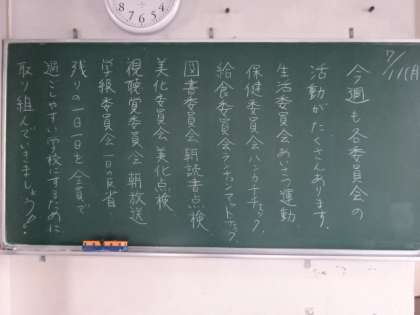 7/11(月)
今週も各委員会の
活動がたくさんあります。
生活委員会 あいさつ運動
保健委員会 ハンカチチェック
給食委員会 ランチョンマットチェック
図書委員会 朝読書点検
美化委員会 美化点検
視聴覚委員会 朝放送
学級委員会 一日の反省
残りの一日一日を全員で
過ごしやすい学校にするために
取り組んでいきましょう!!